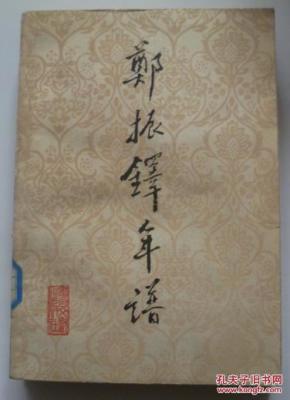 鄭振鐸年譜
孔夫子旧书网